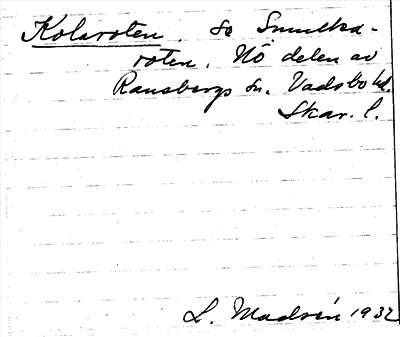 Kolaroten. So Smulka-
roten. Nö delen av
Ransbergs sn. Vadsbo hd.
Skar. l.
L. Madsén 1932